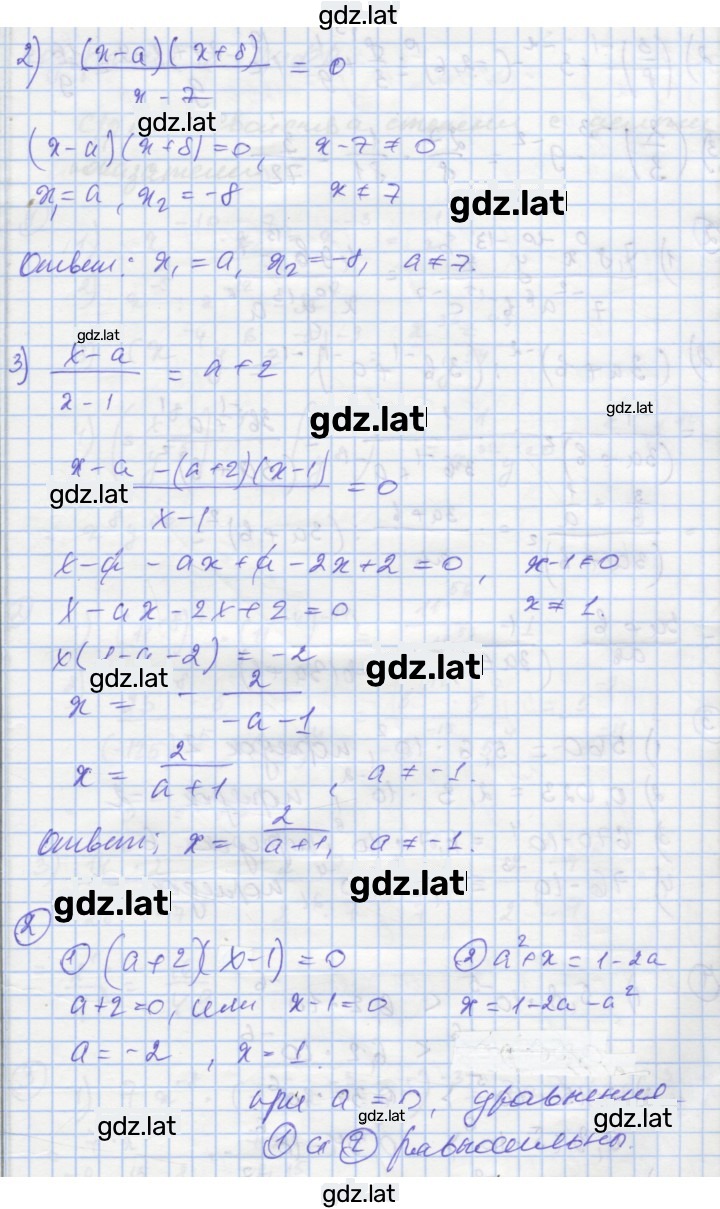 gdz.lat
2) (x-a)(x+8) / x-7 = 0
gdz.lat
(x-a)(x+8)=0, x-7≠0
x₁=a, x₂=-8 x≠7
gdz.lat
Ответ: x₁=a, x₂=-8, a≠7.
gdz.lat
3) x-a / 2-1 = a+2
gdz.lat
gdz.lat
x-a-(a+2)(x-1) / x-1 = 0
gdz.lat
x-a-ax+a-2x+2=0, x-1≠0
x-ax-2x+2=0 x≠1.
x(1-a-2)=-2
gdz.lat
gdz.lat
x = - 2 / -a-1
x = 2 / a+1, a≠-1.
Ответ; x = 2 / a+1, a≠-1.
gdz.lat
gdz.lat
2
① (a+2)(x-1)=0 ② a²+x=1-2a
a+2=0, или x-1=0 x=1-2a-a²
a=-2, x=1.
при a=0, уравнения
gdz.lat
gdz.lat
gdz.lat
① и ② равносильны.
gdz.lat